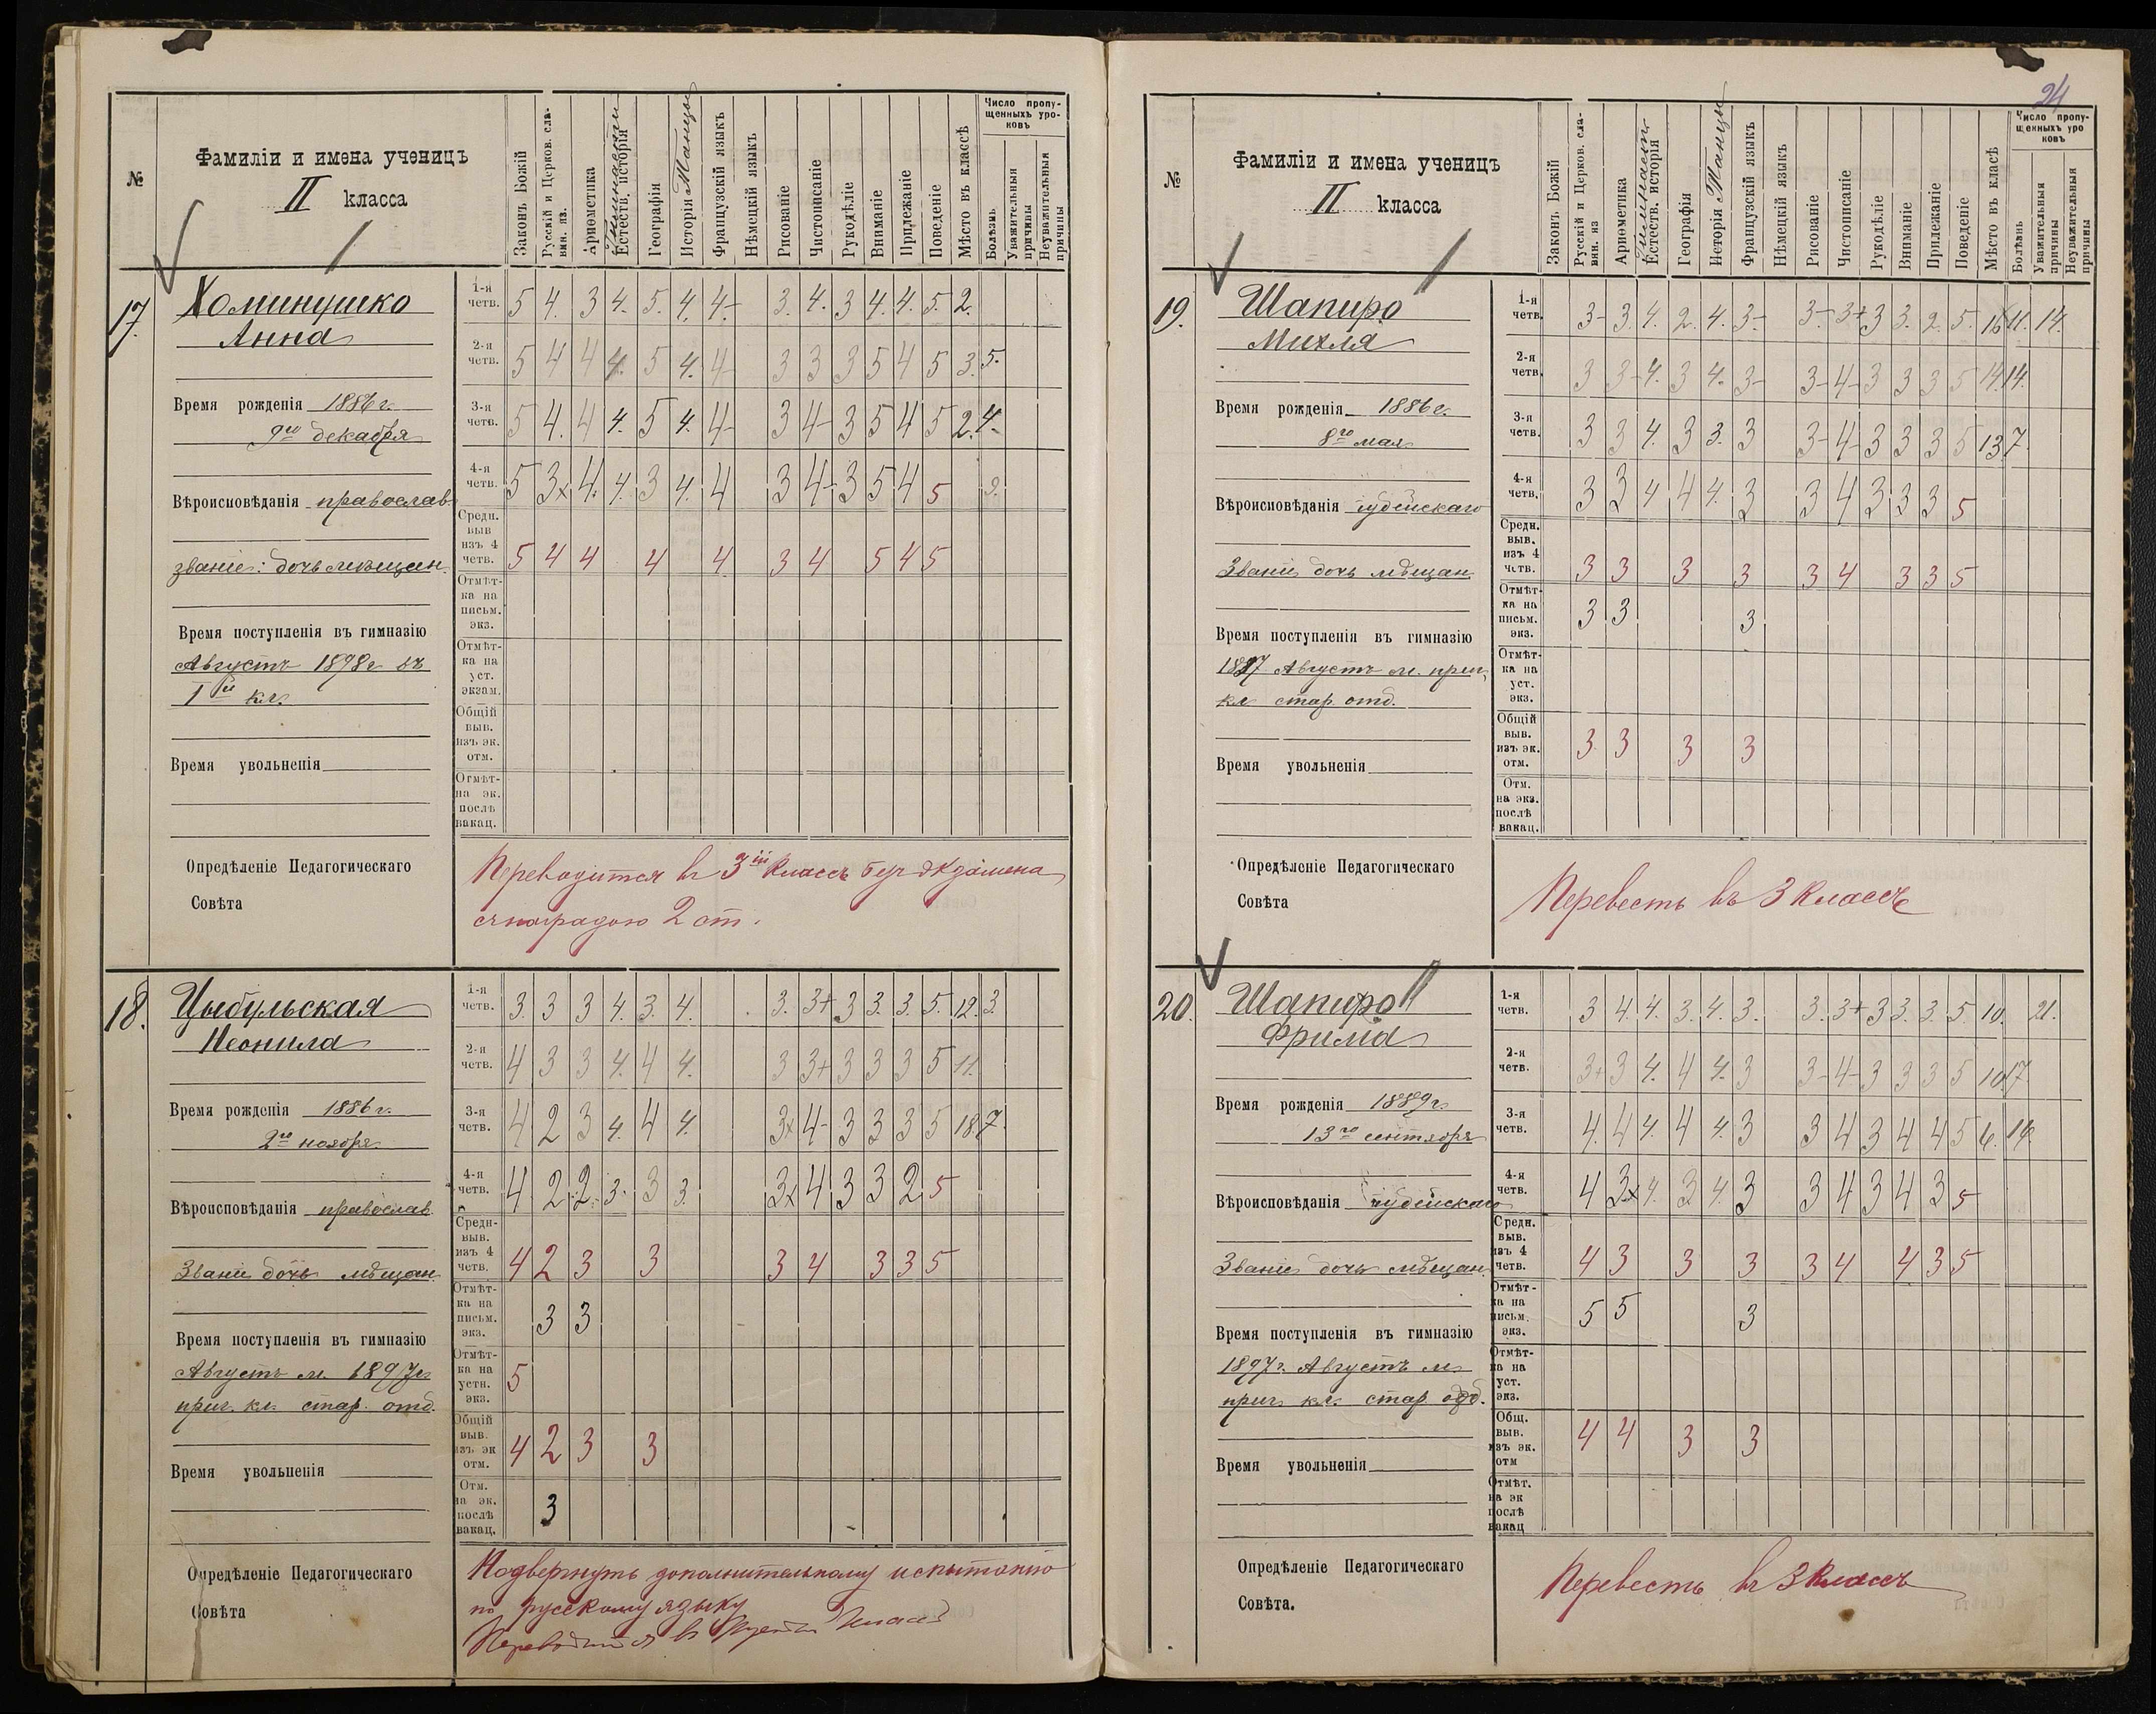 24
№
Фамиліи и имена ученицъ
II класса
Законъ Божій
Русскій и Церков. сла-
вян. яз.
Ариѳметика
Гимнастики
Естеств. исторія
Географія
Исторія Танцы
Французскій языкъ
Нѣмецкій языкъ
Рисованіе
Чистописаніе
Рукодѣліе
Вниманіе
Прилежаніе
Поведеніе
Мѣсто въ классѣ
Число пропу-
щенныхъ уро-
ковъ
Болѣзнь
Уважительныя
причины
Неуважительныя
причины
17.
Хоминушко
Анна
Время рожденія 1886 г.
9го декабря
Вѣроисповѣданія православ.
званіе: дочь мѣщан.
Время поступленія въ гимназію
Августъ 1898 г въ
I й кл.
Время увольненія
1-я четв. 5 4. 3 4. 5. 4. 4- 3. 4. 3 4. 4. 5. 2.
2-я четв. 5 4 4 4. 5 4. 4- 3 3 3 5 4 5 3. 5.
3-я четв. 5 4. 4 4. 5 4. 4- 3 4- 3 5 4 5 2. 4.
4-я четв. 5 3х 4. 4. 3 4. 4 3 4- 3 5 4 5 3.
Средн. выв изъ 4 четв. 5 4 4 4 4 3 4 5 4 5
Отмѣт-ка на письм. экз.
Отмѣт-ка на уст. экзам.
Общій выв. изъ эк. отм.
Отмѣт-на эк. послѣ вакац.
Опредѣленіе Педагогическаго
Совѣта
Переводится въ 3ій классъ безъ экзамена
с наградою 2 ст.
18.
Цыбульская
Неонила
Время рожденія 1886 г.
2го ноября
Вѣроисповѣданія православ.
Званіе дочь мѣщан.
Время поступленія въ гимназію
Августъ м. 1897 г
приг. кл. стар. отд.
Время увольненія
1-я четв. 3. 3 3 4. 3. 4. 3. 3+ 3 3. 3. 5. 12. 3.
2-я четв. 4 3 3 4. 4 4. 3 3+ 3 3 3 5 11.
3-я четв. 4 2 3 4. 4 4. 3х 4- 3 3 3 5 18 7.
4-я четв. 4 2 2. 3. 3 3. 3х 4 3 3 2 5
Средн-выв. изъ 4 четв. 4 2 3 3 3 4 3 3 5
Отмѣт-ка на письм. экз. 3 3
Отмѣт-ка на устн. экз. 5
Общій выв. изъ эк отм. 4 2 3 3
Отм. на эк. послѣ вакац. 3
Опредѣленіе Педагогическаго
Совѣта
Подвергнуть дополнительному испытанію
по русскому языку
Переводится въ третій классъ
№
Фамиліи и имена ученицъ
II класса
Законъ Божій
Русскій и Церков. сла-
вян. яз
Ариѳметика
Гимнаст.
Естеств. исторія
Географія
Исторія Танцы
Французскій языкъ
Нѣмецкій языкъ
Рисованіе
Чистописаніе
Рукодѣліе
Вниманіе
Прилежаніе
Поведеніе
Мѣсто въ класѣ
Число пропу-
щенныхъ уро
ковъ
Болѣзнь
Уважительныя
причины
Неуважительныя
причины
19.
Шапиро
Михля
Время рожденія 1886 г.
8го мая
Вѣроисповѣданія іудейскаго
Званіе дочь мѣщан.
Время поступленія въ гимназію
1897 Августъ м. приг.
кл стар. отд.
Время увольненія
1-я четв. 3- 3. 4. 2. 4. 3- 3- 3+ 3 3. 2. 5. 16 11. 14.
2-я четв. 3 3- 4. 3 4. 3- 3- 4- 3 3 3 5 14. 14.
3-я четв. 3 3 4. 3 3. 3 3- 4- 3 3 3 5 13 7.
4-я четв. 3 3 4 4 4. 3 3 4 3 3 3 5
Средн. выв. изъ 4 четв. 3 3 3 3 3 4 3 3 5
Отмѣт-ка на письм. экз. 3 3 3
Отмѣт-ка на уст. экз.
Общій выв. изъ эк. отм. 3 3 3 3
Отм. на экз. послѣ вакац.
Опредѣленіе Педагогическаго
Совѣта
Перевесть въ 3 классъ
20.
Шапиро
Фрима
Время рожденія 1889 г.
13го сентября
Вѣроисповѣданія іудейскаго
Званіе дочь мѣщан.
Время поступленія въ гимназію
1897 г. Августъ м.
приг. кл. стар. отд.
Время увольненія
1-я четв. 3 4. 4. 3. 4. 3. 3. 3+ 3 3. 3. 5. 10. 21.
2-я четв. 3+ 3 4. 4 4. 3 3- 4- 3 3 3 5 10 17
3-я четв. 4. 4 4. 4 4. 3 3 4 3 4 4 5 6. 14.
4-я четв. 4 3х 4. 3 4. 3 3 4 3 4 3 5
Средн. выв. изъ 4 четв. 4 3 3 3 3 4 4 3 5
Отмѣт-ка на письм. экз. 5 5 3
Отмѣт-ка на уст. экз.
Общ. выв. изъ эк. отм 4 4 3 3
Отмѣт. на эк послѣ вакац
Опредѣленіе Педагогическаго
Совѣта.
Перевесть въ 3 классъ